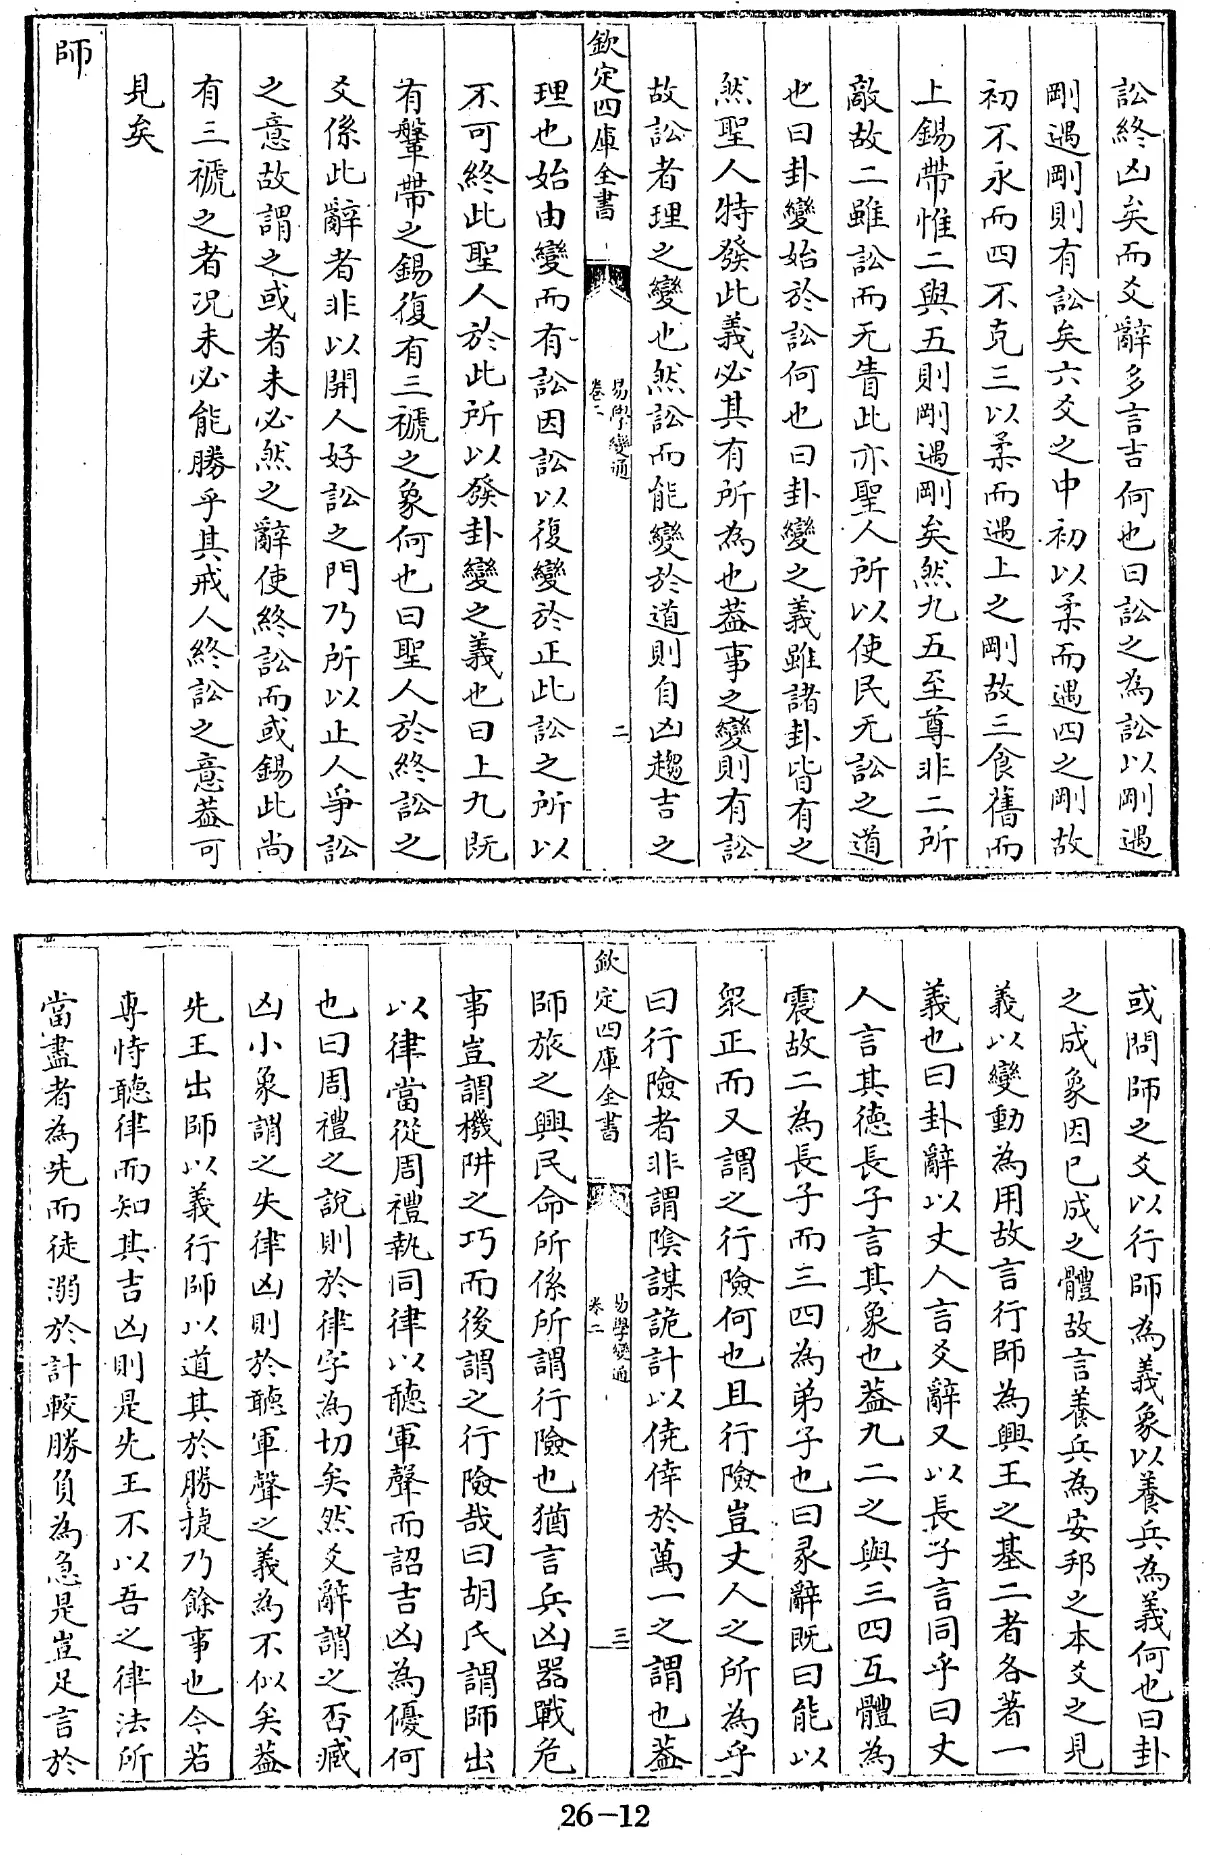 訟終凶矣而爻辭多言吉何也曰訟之為訟以剛遇
剛遇剛則有訟矣六爻之中初以柔而遇四之剛故
初不永而四不克三以柔而遇上之剛故三食舊而
上錫帶惟二與五則剛遇剛矣然九五至尊非二所
敵故二雖訟而无眚此亦聖人所以使民无訟之道
也曰卦變始於訟何也曰卦變之義雖諸卦皆有之
然聖人特發此義必其有所為也葢事之變則有訟
故訟者理之變也然訟而能變於道則自凶趨吉之
欽定四庫全書
易學變通
卷二
二
理也始由變而有訟因訟以復變於正此訟之所以
不可終此聖人於此所以發卦變之義也曰上九既
有鞶帶之錫復有三褫之象何也曰聖人於終訟之
爻係此辭者非以開人好訟之門乃所以止人爭訟
之意故謂之或者未必然之辭使終訟而或錫此尚
有三褫之者況未必能勝乎其戒人終訟之意葢可
見矣
師
或問師之爻以行師為義象以養兵為義何也曰卦
之成象因已成之體故言養兵為安邦之本爻之見
義以變動為用故言行師為興王之基二者各著一
義也曰卦辭以丈人言爻辭又以長子言同乎曰丈
人言其德長子言其象也葢九二之與三四互體為
震故二為長子而三四為弟子也曰彖辭既曰能以
衆正而又謂之行險何也且行險豈丈人之所為乎
曰行險者非謂陰謀詭計以僥倖於萬一之謂也葢
欽定四庫全書
易學變通
卷二
三
師旅之興民命所係所謂行險也猶言兵凶器戰危
事豈謂機阱之巧而後謂之行險哉曰胡氏謂師出
以律當從周禮執同律以聽軍聲而詔吉凶為優何
也曰周禮之說則於律字為切矣然爻辭謂之否臧
凶小象謂之失律凶則於聽軍聲之義為不似矣葢
先王出師以義行師以道其於勝捷乃餘事也今若
專恃聽律而知其吉凶則是先王不以吾之律法所
當盡者為先而徒溺於計較勝負為急是豈足言於
26-12